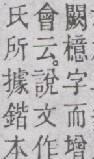 闕檍字而增
會云。說文作
氏所據鍇本